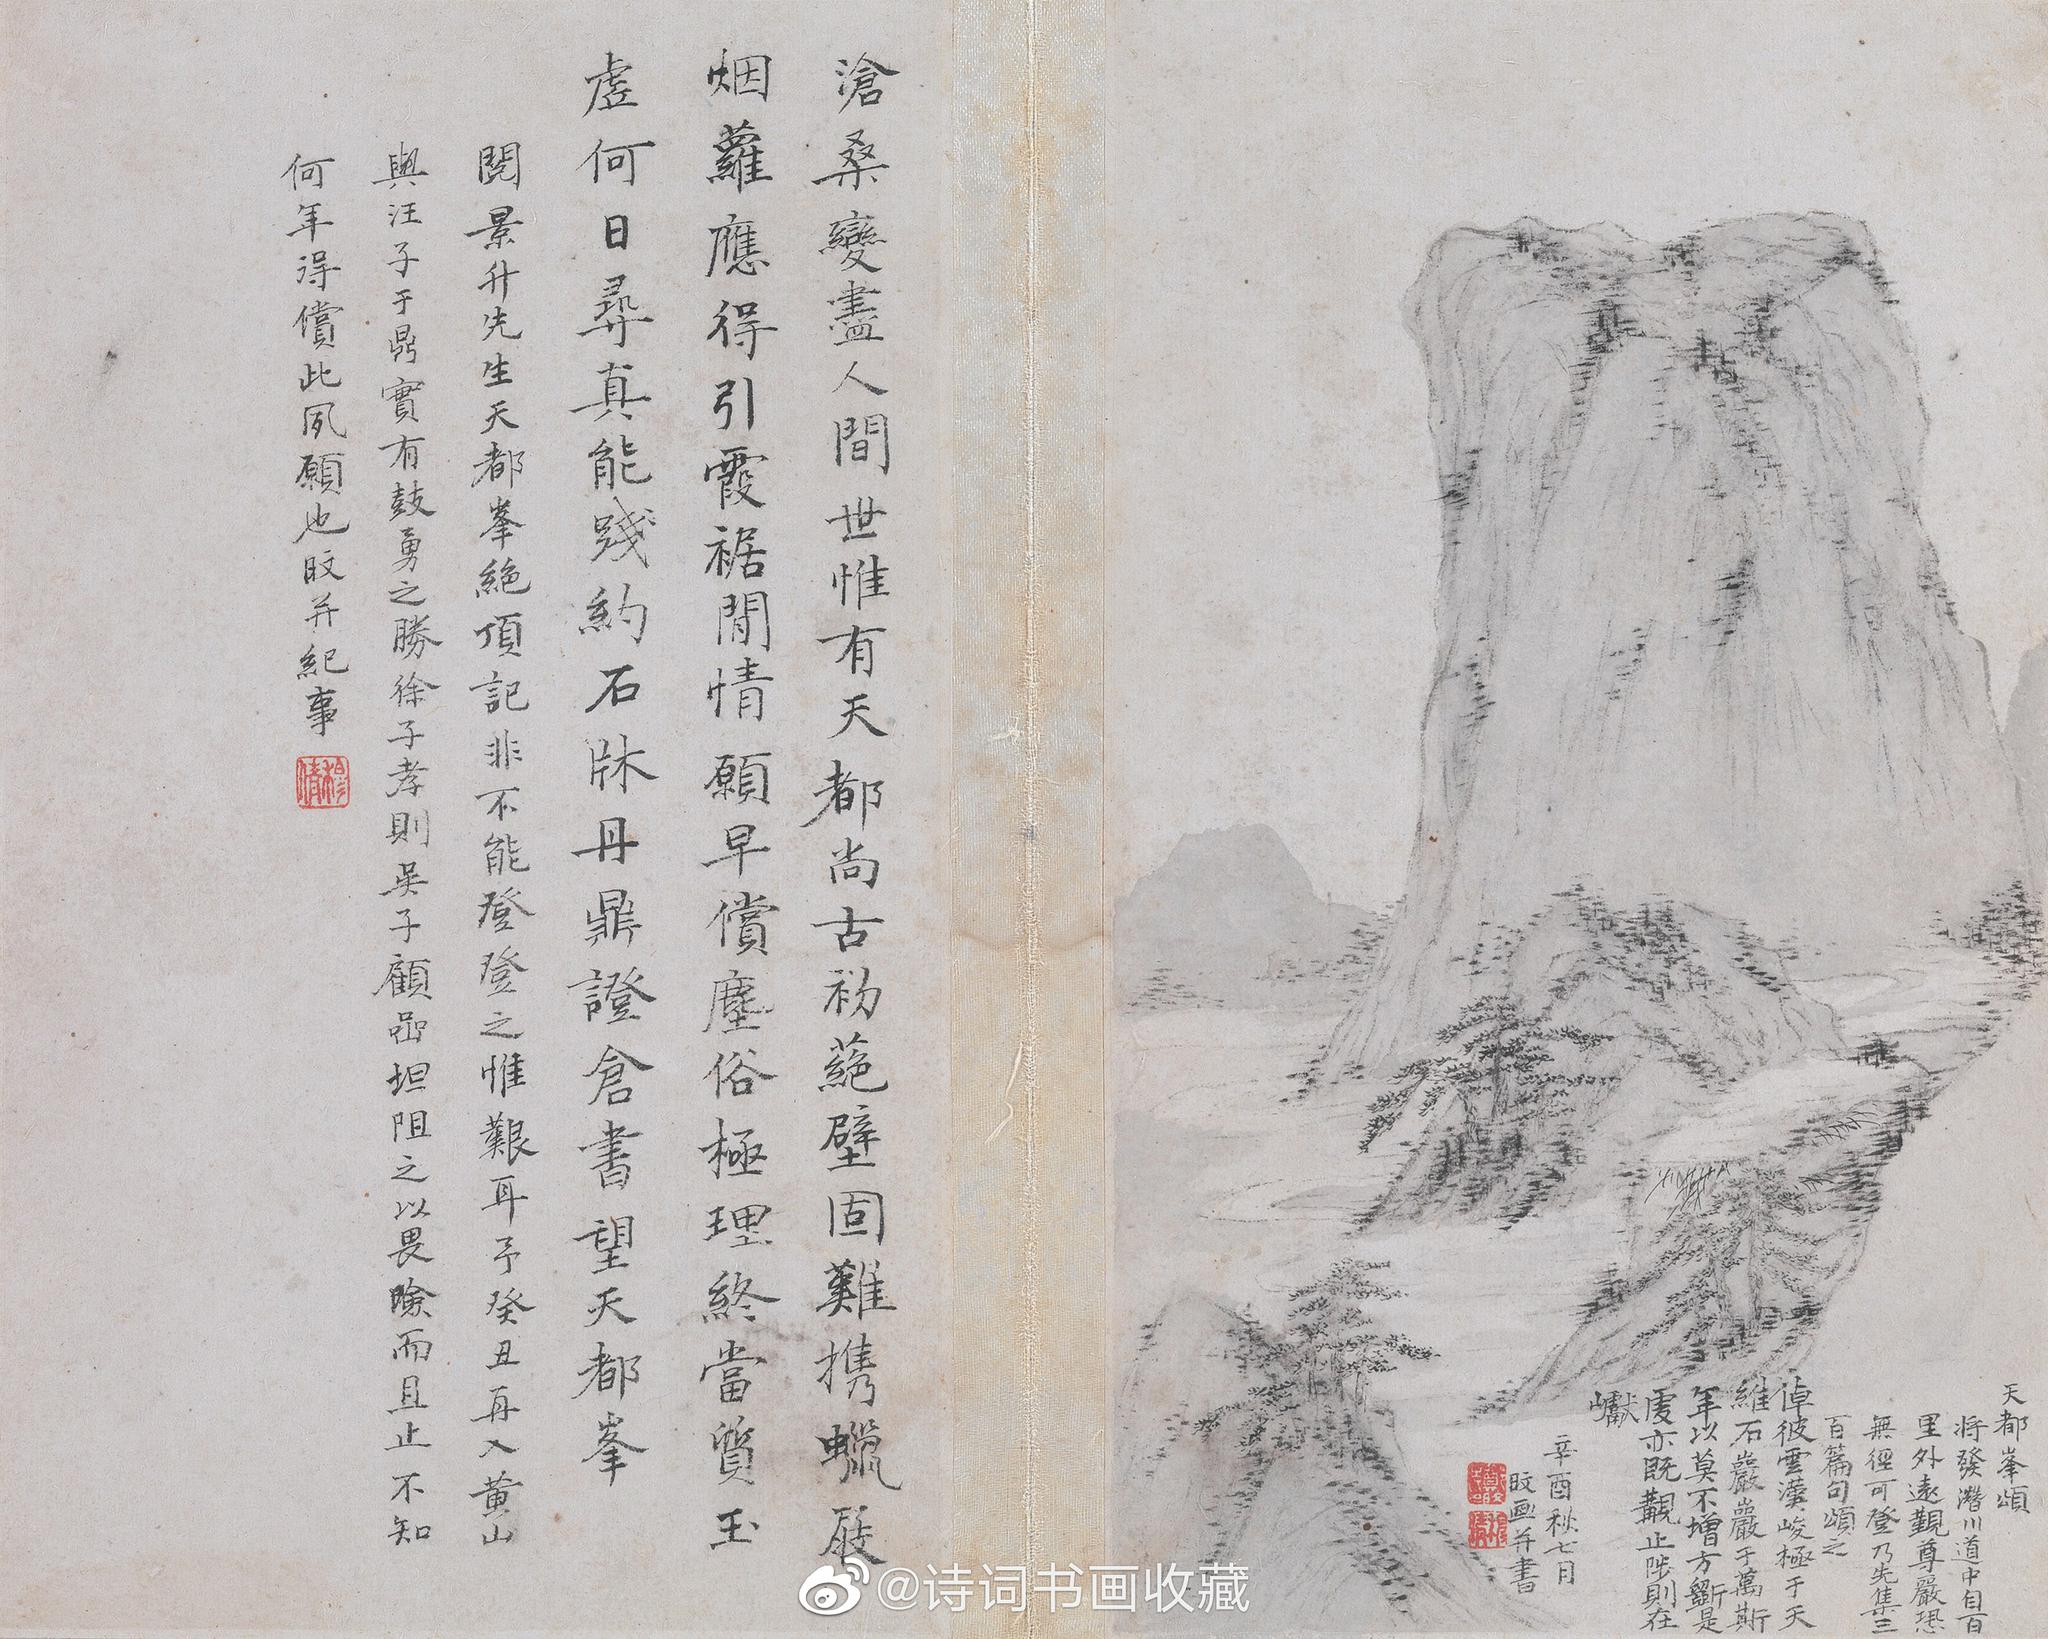 天都峯頌
将發潛川道中自百
里外遠觀尊嚴恐
無徑可登乃先集三
百篇句頌之
倬彼雲漢峻極于天
維石巖巖巖于萬斯
年以莫不增方斲是
虔亦既覯止陟則在
巘
辛酉秋七月
旼画并書
滄桑變盡人間世惟有天都尚古初蕝壁固難携蠟屐
烟蘿應得引霞裾閒情願早償塵俗極理終當質玉
虛何日尋真能踐約石牀丹鼎證倉書望天都峯
閱景升先生天都峯絕頂記非不能登登之惟艱耳予癸丑再入黃山
與汪子于鼎實有鼓勇之勝徐子孝則吳子顧嵒坦阻之以畏險而且止不知
何年得償此夙願也旼并紀事
穆倩
@诗词书画收藏